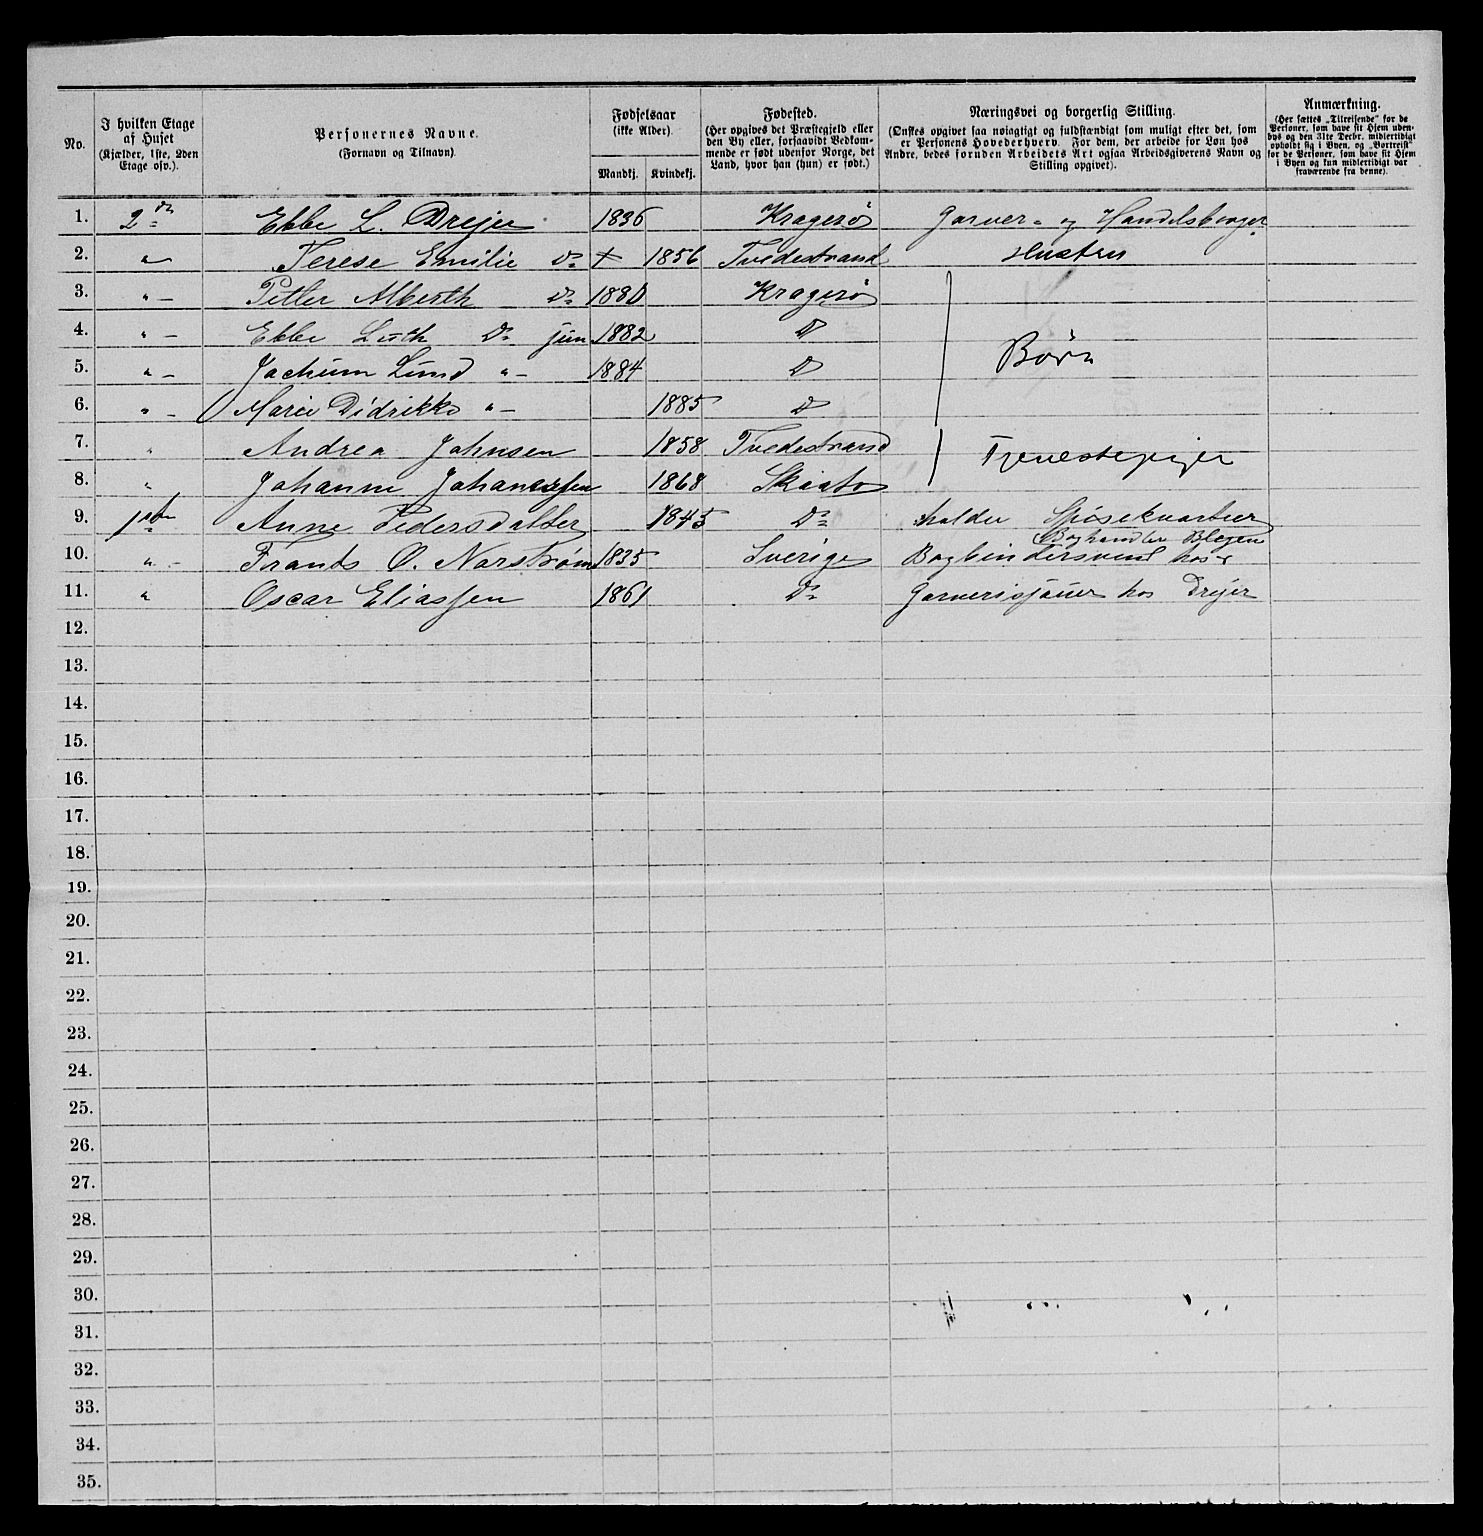 No.
I hvilken Etage af Huset (Kjælder, 1ste, 2den Etage osv.).
Personernes Navne. (Fornavn og Tilnavn).
Fødselsaar (ikke Alder).
Mandkj. Kvindekj.
Fødested.
(Her opgives det Præstegjeld eller den By eller, forsaavidt Vedkommende er født udenfor Norge, det Land, hvor han (hun) er født.)
Næringsvei og borgerlig Stilling.
(Ønskes opgivet saa nøiagtigt og fuldstændigt som muligt efter det, som er Personens Hovederhverv. For dem, der arbeide for Løn hos Andre, bedes foruden Arbeidets Art ogsaa Arbeidsgiverens Navn og Stilling opgivet).
Anmærkning.
(Her sættes „Tilreisende" for de Personer, som have sit Hjem udenbys og den 31te Decbr. midlertidigt opholdt sig i Byen, og „Bortreist" for de Personer, som have sit Hjem i Byen og kun midlertidigt var fraværende fra denne).
1. 2den Ebbe L. Drejer 1836 Kragerø Garver- og Handelsborger
2. " Terese Emilie Do + 1856 Tvedestrand Hustru
3. " – Petter Alberth Do 1880 Kragerø
4. " – Ebbe Do jun 1882 Do
5. " – Jochum Lund " – 1884 Do Børn
6. " – Marie Didrikke " – 1885 Do
7. " Andrea Johnsen 1858 Tvedestrand Tjenestepiger
8. " Johanne Johannessen 1868 Skaatø
9. 1ste Anne Pedersdatter 1845 Do holder Spisekvarteer
Boghandler Blegen
10. " – Frants O. Norstrøm 1835 Sverige Bogbindersvend hos
11. " Oscar Eliassen 1861 Do Garverisvend hos Drejer
12.
13.
14.
15.
16.
17.
18.
19.
20.
21.
22.
23.
24.
25.
26.
27.
28.
29.
30.
31.
32.
33.
34.
35.